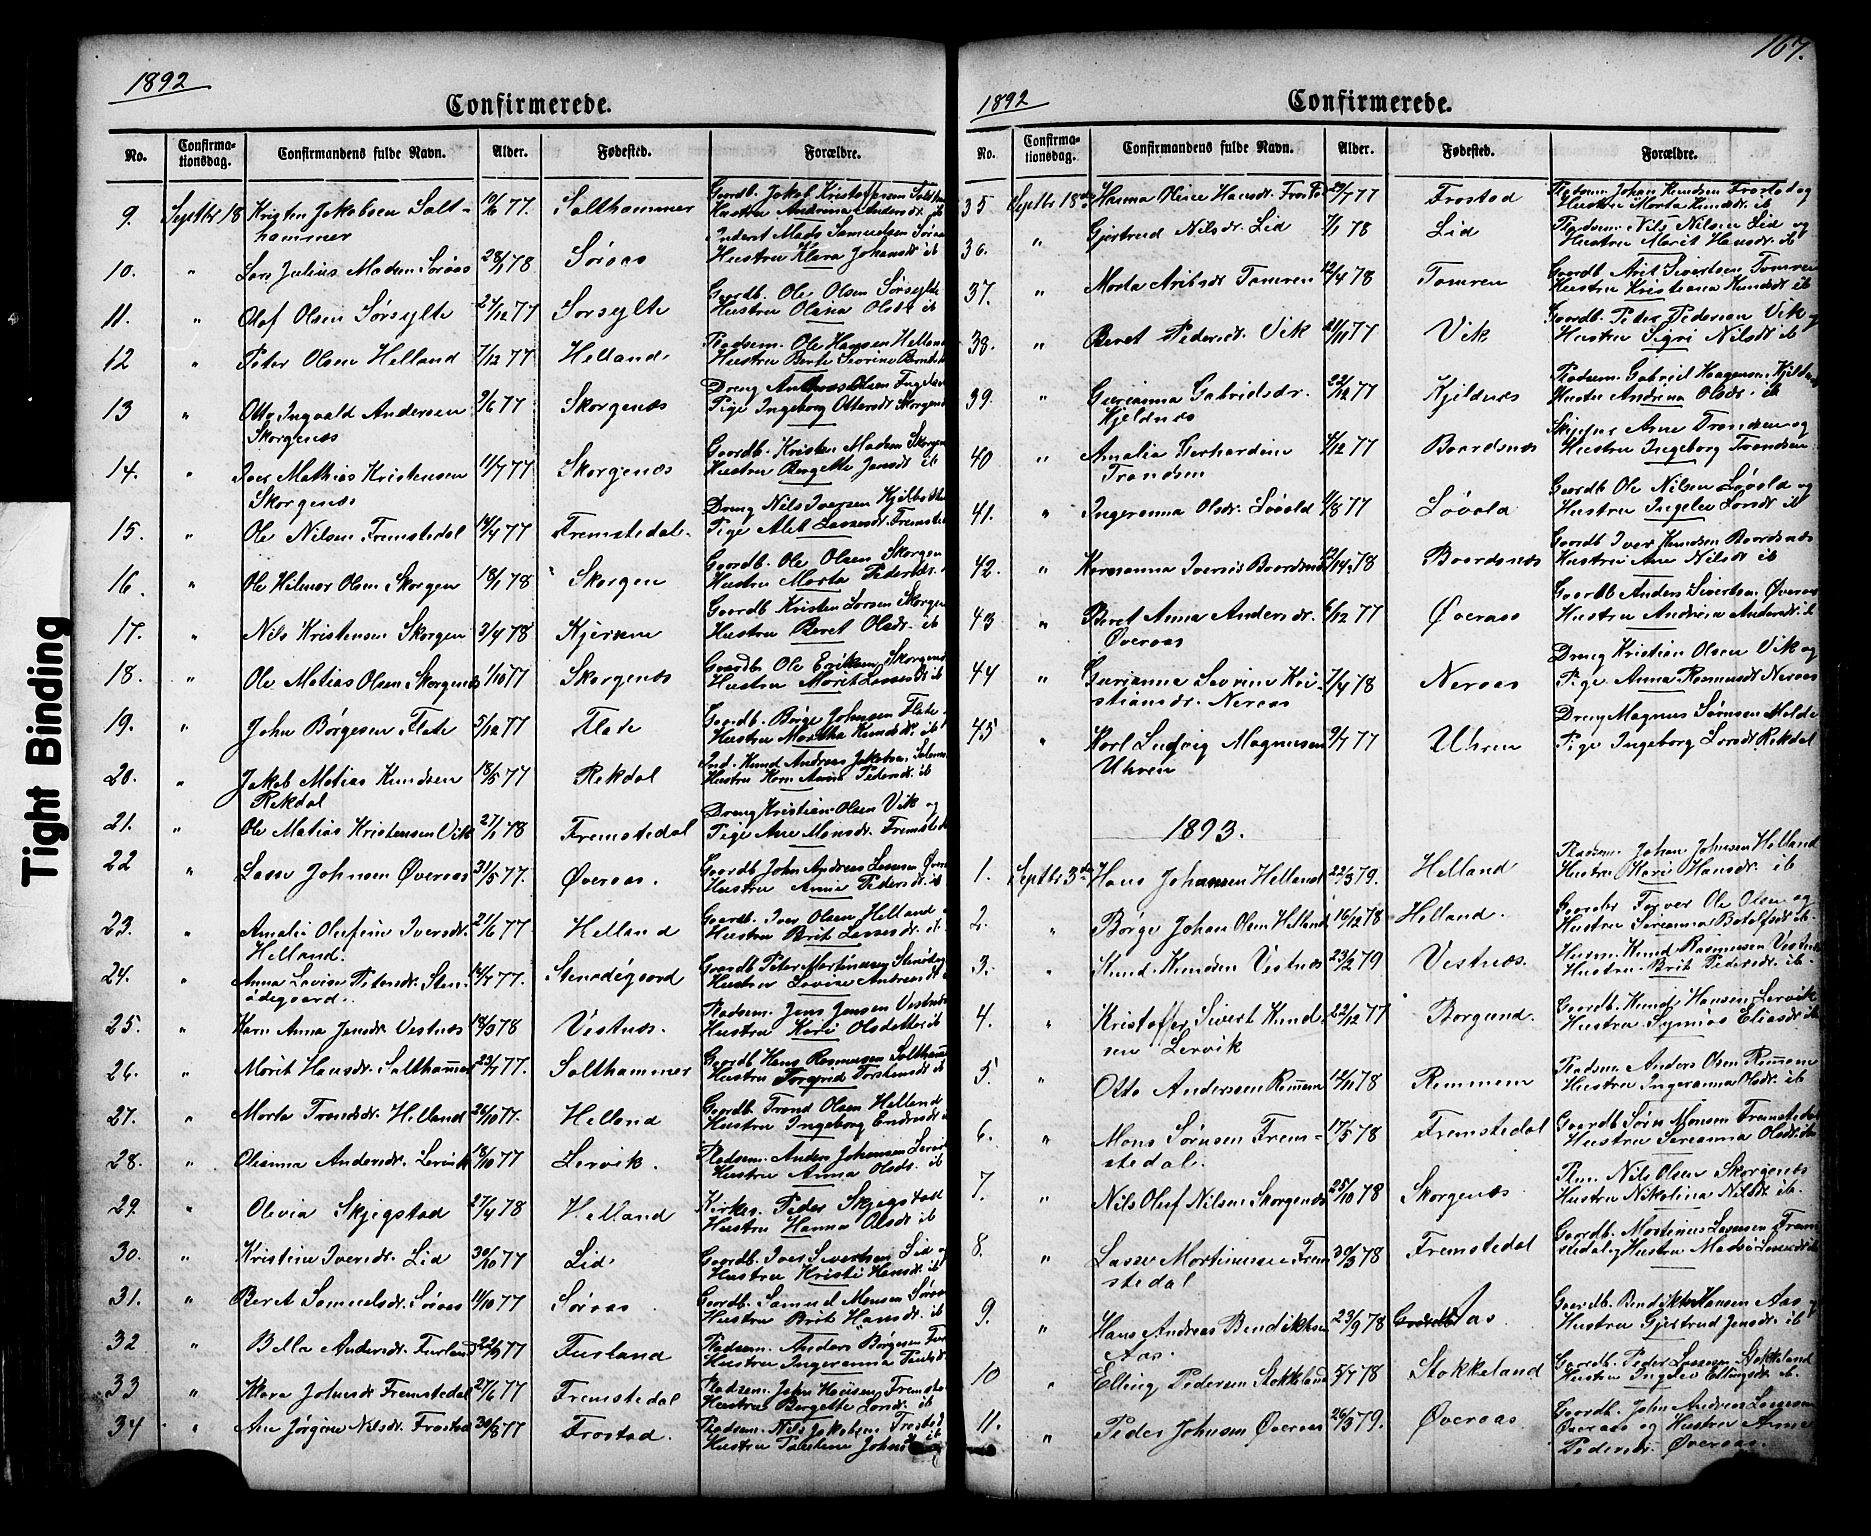 Tight Binding
1892
Confirmerede.
No. Confirma-tionsdag. Confirmandens fulde Navn. Alder. Fødested. Forældre.
9. Septbr 18 Kristen Jakobsen Salt- 77. Salthammer Gaardb. Jakob Kristoffersen
hammer Hustru Andrina Andersdr. ib
10. " Lars Julius Madsen Søraas 28/1 78 Søraas Inderst Mads Samuelsen Søraas
Hustru Klara Johansdr ib
11. " Olaf Olsen Sørsylte 27/12 77 Sørsylte Gaardb. Ole Olsen Sørsylte
Hustru Olina Olsdr. ib
12 " Peter Olsen Helland 7/12 77 Helland Pladsem. Ole Hansen Helland
Hustru Berte Sevrine
13 " Otto Ingvald Andersen 2/6 77 Skorgenæs Dreng Andreas Olsen
Skorgenæs Pige Ingeborg Ottersdr Skorgenæs
14. " Iver Mathias Kristensen 11/7 77 Skorgenæs Gaardb. Kristen Madsen
Skorgenæs Hustru Bergette Jensdr ib
15. " Ole Nilsen Fremstedal 14/4 77 Fremstedal Dreng Nils Iversen
Pige Alet Lassesdr. Fremste
16 " Ole Helmer Olsen Skorgen 18/1 78 Skorgen Gaardb. Ole Olsen Skorgen
Hustru Marta Pedersdr.
17. " Nils Kristensen Skorgen 2/4 78 Gaardb Kristen Larsen Skorgen
Hustru Beret Olsdr. ib
18. " Ole Matias Olsen Skorgenæs 1/10 77 Skorgenæs Gaardb Ole Eriksen Skorgenæs
Hustru Marit Lassesdr ib
19. " John Børgesen Flate 5/12 77 Flate Gaardb. Børge Johnsen Flate
Hustru Martha Knudsdr. ib
20. " Jakob Matias Knudsen 18/5 77 Rekdal Ind. Knud Andreas Jakobsen
Rekdal Hustru Karn Anna Pedersdr. ib
21. " Ole Matias Kristensen Vik 27/1 78 Fremstedal Dreng Kristian Olsen Vik og
Pige Ane Monsdr. Fremste
22 " Lasse Johnsen Øveraas 31/5 77. Øveraas. Gaardb John Andreas Lassesen
Hustru Anne Pedersdr. ib
23. " Amalie Olufine Iversdr. 21/6 77 Helland Gaardb. Iver Olsen Helland
Helland. Hustru Brit Lassesdr.
24. " Anna Lovise Petersdr. Sten- 14/7 77. Stenødegaard Gaardb Peter Martinusen
ødegaard. Hustru Lovise
25. " Karn Anna Jensdr. Vestnæs 18/3 78 Vestnæs. Pladsem. Jens Jensen Vestnæs
Hustru Kari Olsdatter ib
26. " Marit Hansdr. Salthammer 23/7 77. Salthammer Gaardb Hans Rasmussen
Hustru Torstensdr ib
27. " Marta Trondsdr. Helland 26/10 77. Helland Gaardb. Trond Olsen Helland
Hustru Ingeborg Endresdr
28. " Olianna Andersdr. Lervik 18/10 77 Lervik. Pladsem. Anders Johansen Lervik
Hustru Anna Olsdr. ib
29. " Olivia Skjegstad 27/4 78 Helland Peder Skjegstad
Hustru Hanna Olsdr ib
30. " Kristine Iversdr. Lid 30/10 77 Lid Gaardb. Iver Sivertsen Lid
Hustru Kristi Hansdr. ib
31. " Beret Samuelsdr. Søraas 11/10 77 Søraas Gaardb. Samuel Monsen
Hustru Brit Hansdr. ib
32 " Bella Andersdr. Furland 22/3 77 Furland Pladsem. Anders Børgesen
Hustru Ingeranna
33 " Klara Johnsdr Fremstedal 27/6 77 Fremstedal Pladsem. John Hansen
Hustru Bergette Larsdr. ib
34 " Ane Jørgine Nilsdr. Frostad 30/8 77 Frostad. Pladsem. Nils Jakobsen Frostad
Hustru
167.
1892
Confirmerede.
No. Confirma-tionsdag. Confirmandens fulde Navn. Alder. Fødested. Forældre.
35. Septbr 18de Hanna Oline Hansdr. 29/7 77 Frostad Pladsem. Johan Knudsen Frostad og
Hustru Marta Knudsdr. ib
36. " Gjertrud Nilsdr. Lid 7/1 78 Lid Pladsem. Nils Nilsen Lid og
Hustru Marit Hansdr. ib
37. " Marta Tomren 12/4 78 Tomren Gaardb. Sivertsen Tomren
Hustru Kristiana Knudsdr ib
38. " Beret Pedersdr. Vik 21/11 77 Vik Gaardb. Peder Pedersen Vik
Hustru Sigri Nilsdr ib
39. " Gurianna Gabrielsdr. 22/12 77 Kjeldnæs Pladsem. Gabriel
Kjeldnæs Hustru Andrina Olsdr. ib
40 " Amalia Gerhardine 4/12 77 Baardsnæs Arne Trondsen og
Trondsen Hustru Ingeborg Trondsen
41. " Ingeranna Olsdr. Løvold 1/8 77 Løvold Gaardb Ole Nilsen Løvold og
Hustru Ingelev Larsdr ib
42. " Iversdr Baardsnæs 78 Baardsnæs Gaardb Iver Knudsen Baardsnæs
Hustru Ane Nilsdr ib
43 " Beret Anna Andersdr. 6/12 77 Øveraas Gaardb Anders Sivertsen Øveraas
Øveraas Hustru Andrina Andersdr ib
44 " Gurianna Sevrine Kri- 7/4 78 Neraas Dreng Kristian Olsen Vik og
stiansdr. Neraas Pige Anna Rasmusdr Neraas
45 " Karl Ludvig Magnusen 9/7 77 Uhren Dreng Magnus Sørnsen Melde
Uhren Pige Ingeborg Larsdr Rekdal
1893.
1. Septbr 3de Hans Johansen Helland 22/3 79. Helland Pladsem. Johan Johnsen Helland
Hustru Mari Hansdr. ib
2. " Børge Johan Olsen Helland 16/12 78 Helland. Ole Olsen og
Hustru Sereanna Botolfsdr ib
3. " Knud Knudsen Vestnæs 23/2 79 Vestnæs. Husm. Knud Rasmusen Vestnæs
Hustru Brit Pedersdr. ib
4. " Kristoffer Sivert Knud- 22/12 77 Borgund. Gaardb. Knud Hansen Lervik
sen Lervik Hustru Synnøs Eliasdr ib
5. " Otto Andersen Remmem 14/11 78 Remmem Pladsem Anders Olsen Remmem
Hustru Ingeranna Olsdr. ib
6. " Mons Sørnsen Frem- 17/5 78 Fremstedal Gaardb Sørn Monsen Fremstedal
stedal. Hustru Sereanna Olsdr. ib
7. " Nils Oluf Nilsen Skorgenæs 25/10 78 Skorgenæs Nils Olsen Skorgenæs
Hustru Nikolina Nilsdr ib.
8. " Lasse Martinusen Frem- 30/3 78 Fremstedal Gaardb. Martinus Lassesen Frem-
stedal stedal og Hustru
9. " Hans Andreas Bendiktsen 23/9 78 Aas Gaardb. Bendikt Hansen Aas
Aas. Hustru Gjertrud Jensdr. ib
10 " Elling Pedersen Stokkeland 5/7 78 Stokkeland Gaardb. Peder Lassesen Stokkeland
Hustru Ingelev Ellingsdr. ib.
11. " Peder Johnsen Øveraas 26/3 79. Øveraas Gaardb. John Andreas Lassesen
Øveraas og Hustru Anne
Pedersdr. Øveraas.